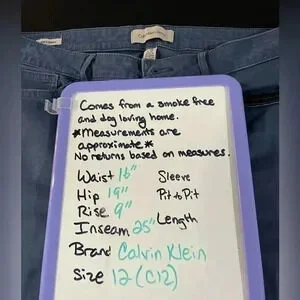 Comes from a smoke free
and dog loving home.
*Measurements are
approximate*
No returns based on measures.
Waist 16"
Hip 19"
Rise 9"
Inseam 25"
Sleeve
Pit to Pit
Length
Brand Calvin Klein
Size 12 (C12)